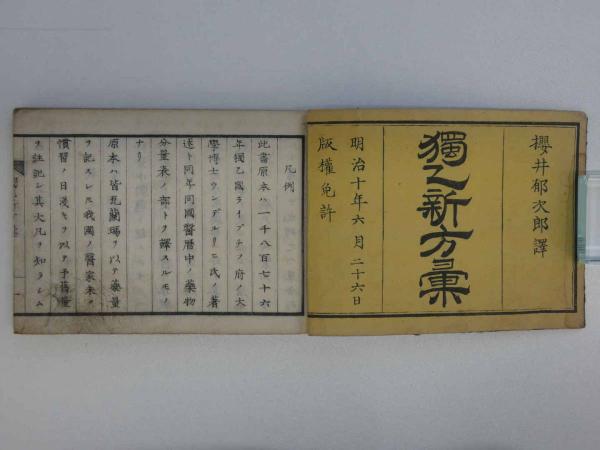 櫻井郁次郎譯
獨乙新方彙
明治十年六月二十六日
版權免許
凡例
此書原本ハ一千八百七十六
年獨乙國ライプチヶ府ノ大
學博士ウンデルリヒ氏ノ著
述ト同年同國醫曆中ノ藥物
分量表ノ部トヲ譯スルモノ
ナリ
原本ハ皆瓦蘭瑪ヲ以テ藥量
ヲ記スレ𪜈我國ノ醫家未タ
慣習ノ日淺キヲ以テ予舊量
ヲ註記シ其大凡ヲ知ラシム